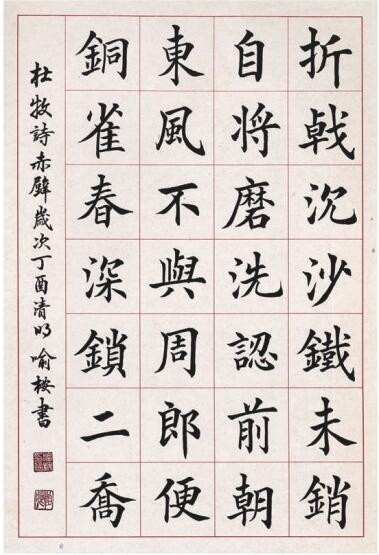 折戟沉沙鐵未銷
自将磨洗認前朝
東風不與周郎便
銅雀春深鎖二喬
杜牧詩赤壁歲次丁酉清明喻桉書